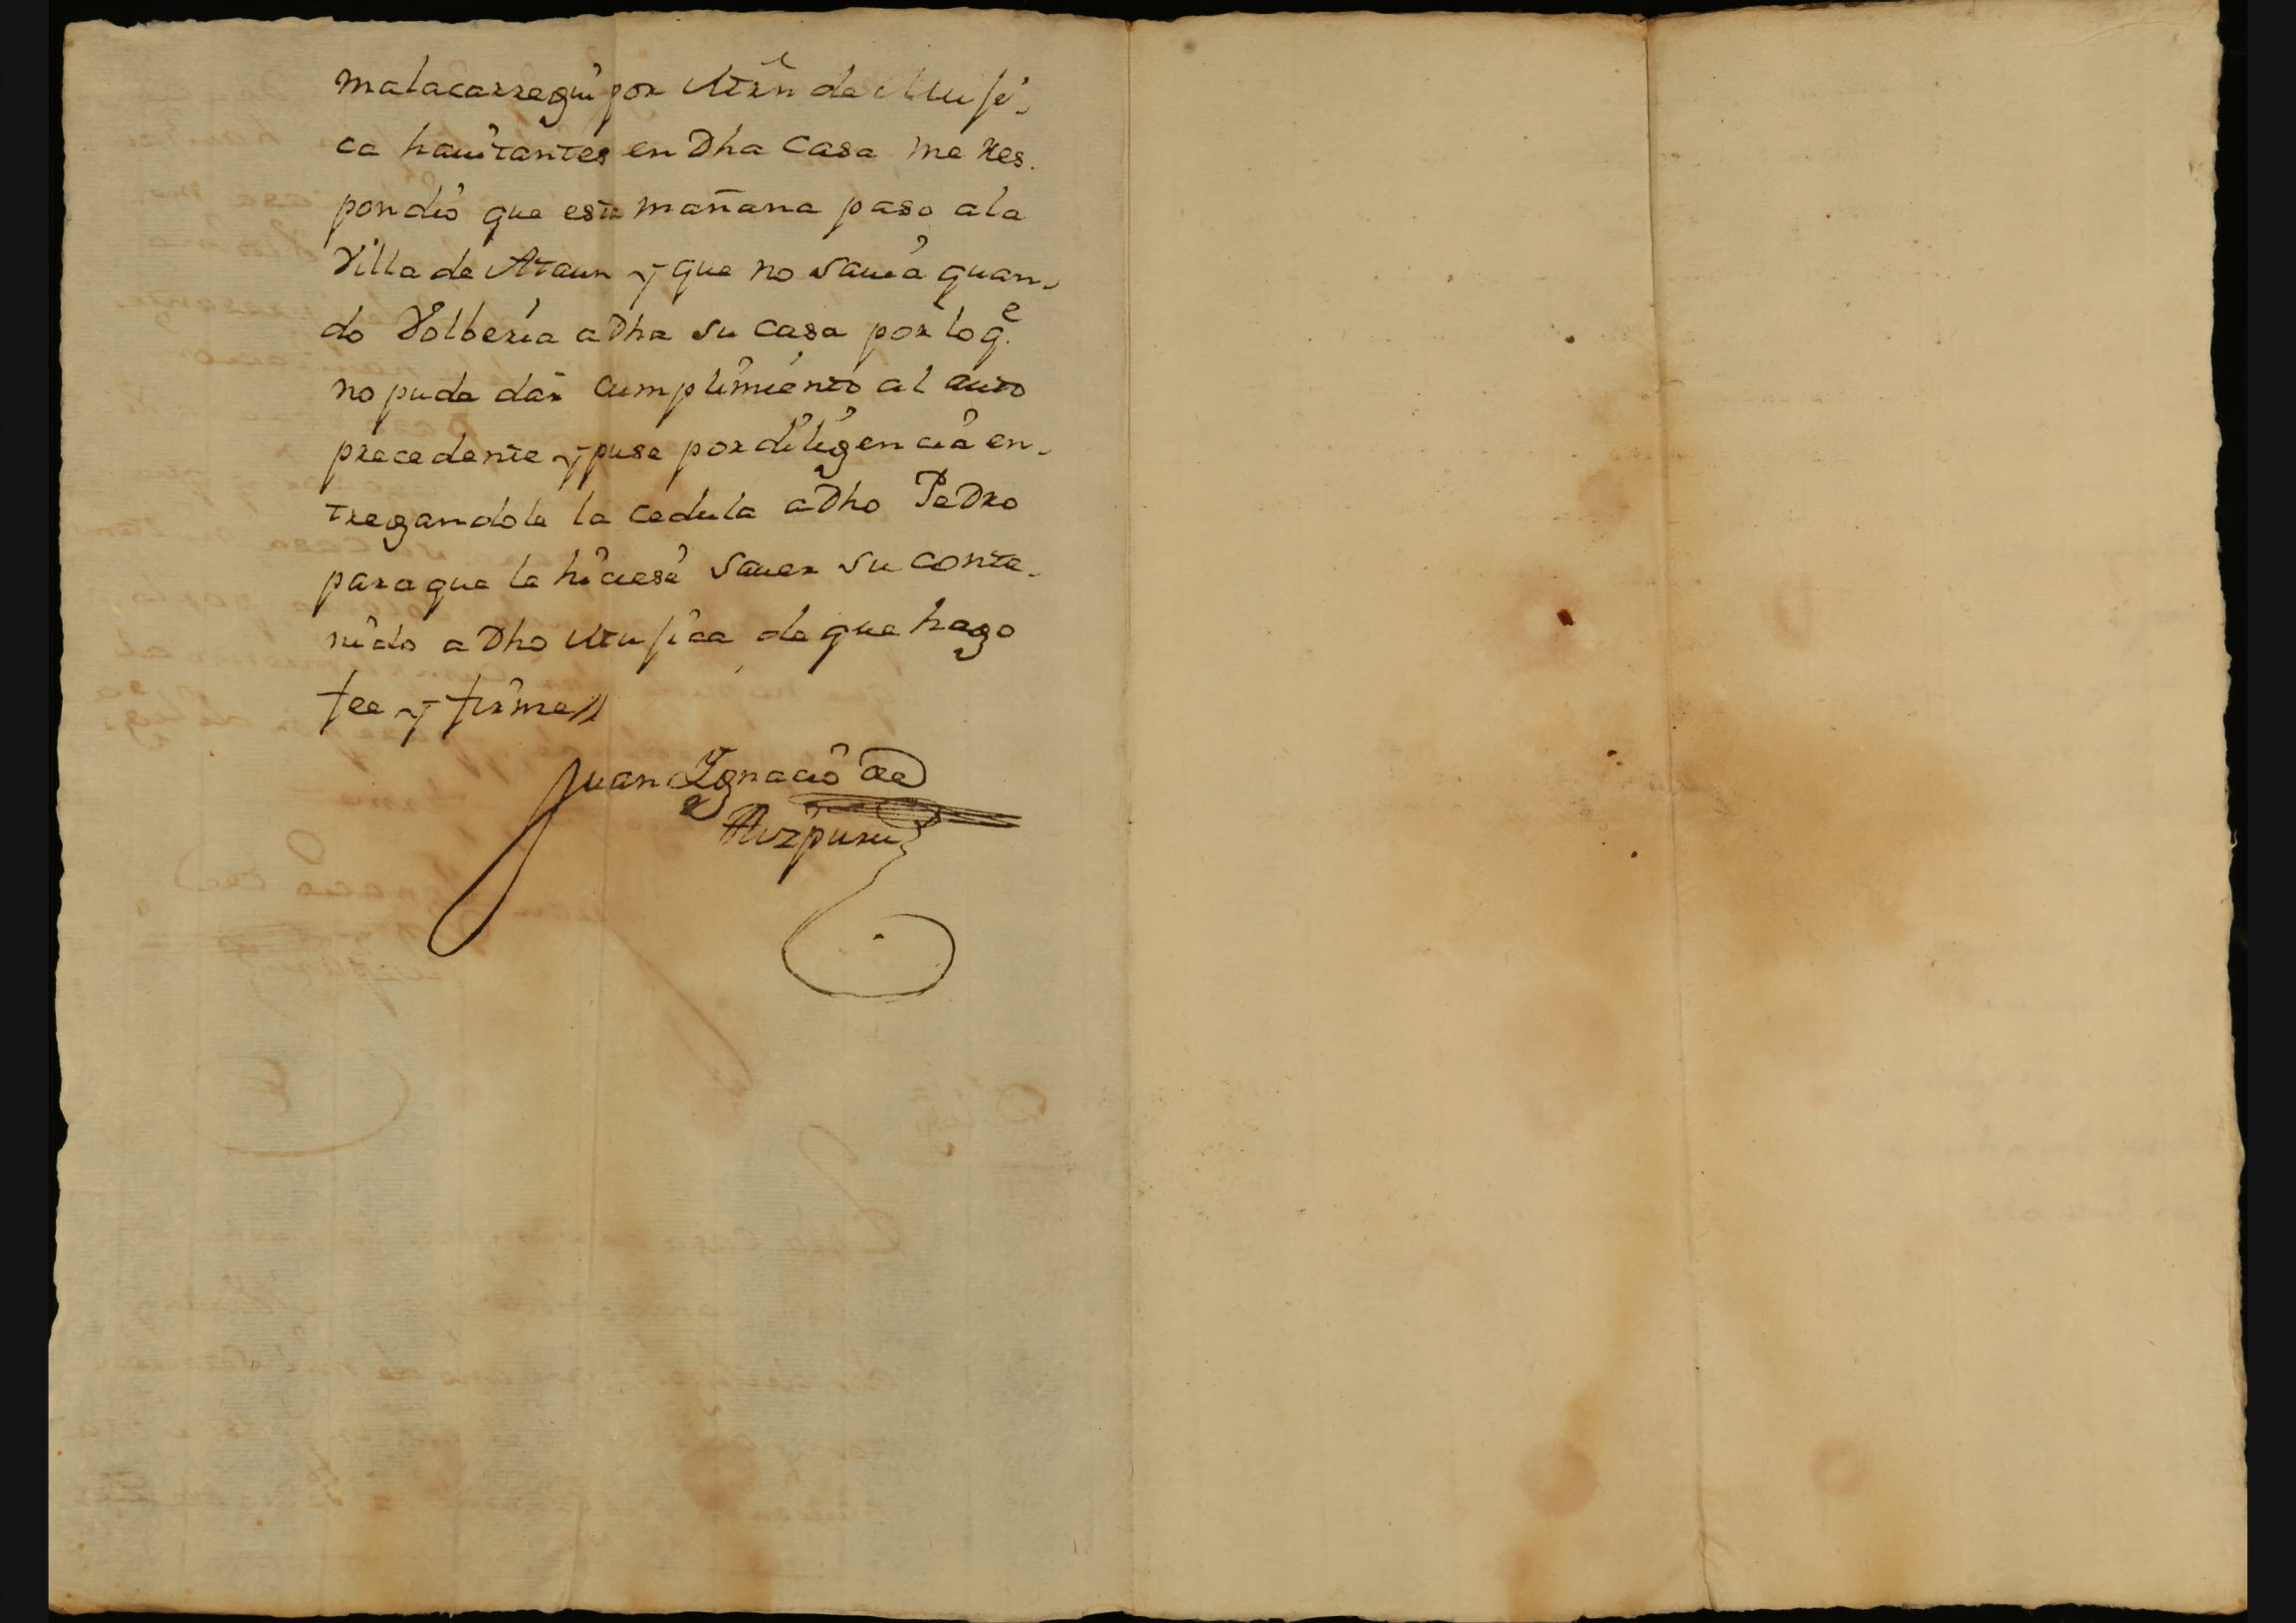 malacarregui por Mrñ de Musi-
ca hauitantes en Dha Casa, me Res-
pondio que esta mañana paso a la
Villa de Ataun y que no sauia quan-
do Volberia a Dha su Casa por lo q.e
no pude dar Cumplimiento al auto
precedente y puse por diligencia en-
tregandole la cedula a Dho Pedro
para que le hiciese sauer su conte-
nido a Dho Musica de que hago
fee y firme //
Juan Ignacio de
Aizpuru